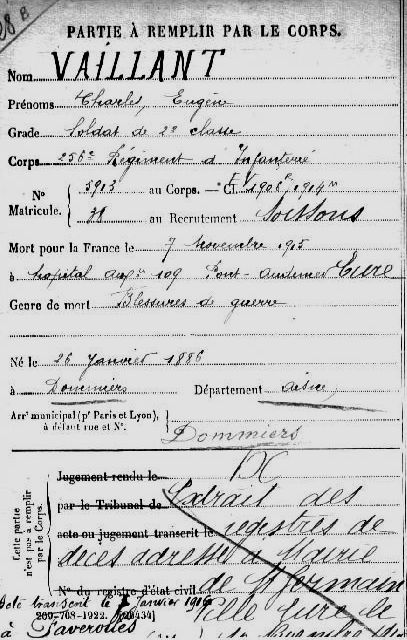 28 B
PARTIE À REMPLIR PAR LE CORPS.
Nom VAILLANT
Prénoms Charles, Eugène
Grade Soldat de 2e classe
Corps 256e Régiment d'Infanterie
N° Matricule. { 5913 au Corps. - Cl. 1906
au Recrutement Soissons
Mort pour la France le 7 novembre 1915
à hopital auxre 109 Pont-audemer Eure
Genre de mort Blessures de guerre
Né le 26 Janvier 1886
à Dommiers Département aisne
Arrt municipal (pr Paris et Lyon), à défaut rue et N°. {
Dommiers
Cette partie n'est pas à remplir par le Corps.
Jugement rendu le
par le Tribunal de Extrait des
acte ou jugement transcrit le registres de
décès adressé à Mairie
N° du registre d'état civil de St Germain
transcrit le Janvier 1916 Ville Eure le
269-708-1922. [26434]